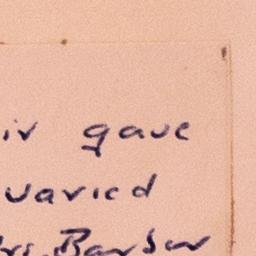 ir gave
varied
rs. Barber